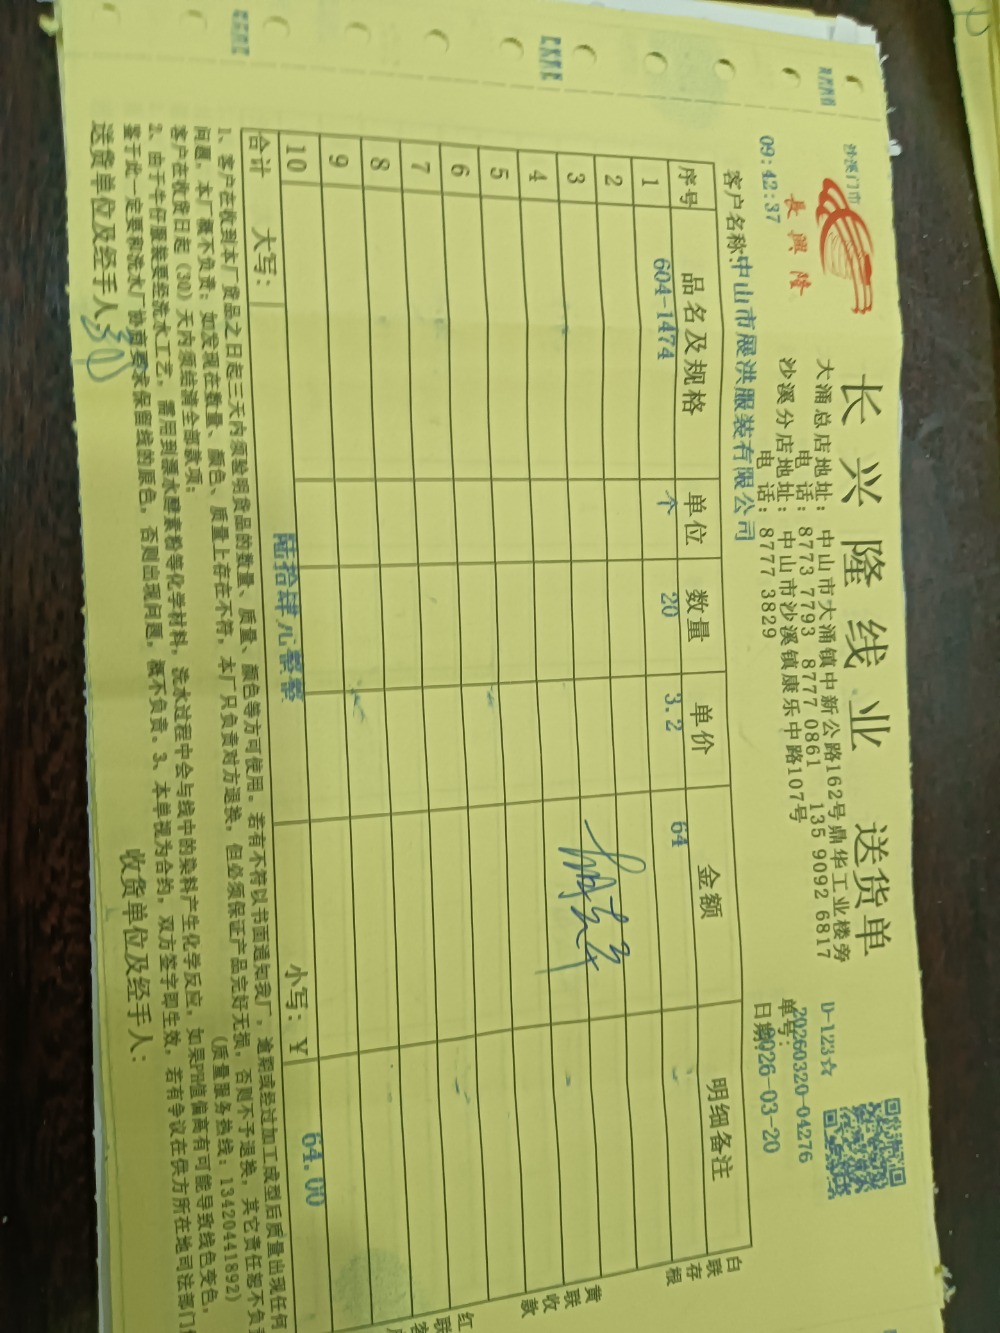 沙溪门市
長興隆
长兴隆线业 送货单
大涌总店地址：中山市大涌镇中新公路162号鼎华工业楼旁
电 话：8773 7793 8777 0861 135 9092 6817
沙溪分店地址：中山市沙溪镇康乐中路107号
电 话：8777 3829
D-123☆
单号：20260320-04276
日期：2026-03-20
09:42:37
客户名称：中山市展洪服装有限公司
序号 品名及规格 单位 数量 单价 金额 明细备注
1 604-1474 个 20 3.2 64
2
3
4
5
6
7
8
9
10
合计 大写： 陆拾肆元整 小写：￥ 64.00
1、客户在收到本厂货品之日起三天内须验明货品的数量、质量、颜色等方可使用。若有不符以书面通知我厂，逾期或经过加工成型后质量出现任何
问题，本厂概不负责；如发现在数量、颜色、质量上存在不符，本厂只负责对方退换，但必须保证产品完好无损，否则不予退换，其它责任恕不负责
客户在收货日起（30）天内须结清全部款项； （质量服务热线：13420441892）
2、由于牛仔服装要经洗水工艺，需用到漂水酵素粉等化学材料，洗水过程中会与线中的染料产生化学反应，如果PH值偏高有可能导致线色变色，
鉴于此一定要和洗水厂协商要求保留线的原色，否则出现问题，概不负责。3、本单视为合约，双方签字即生效，若有争议在供方所在地司法部门
送货单位及经手人： 收货单位及经手人：
白联存根
黄联收款
红联客